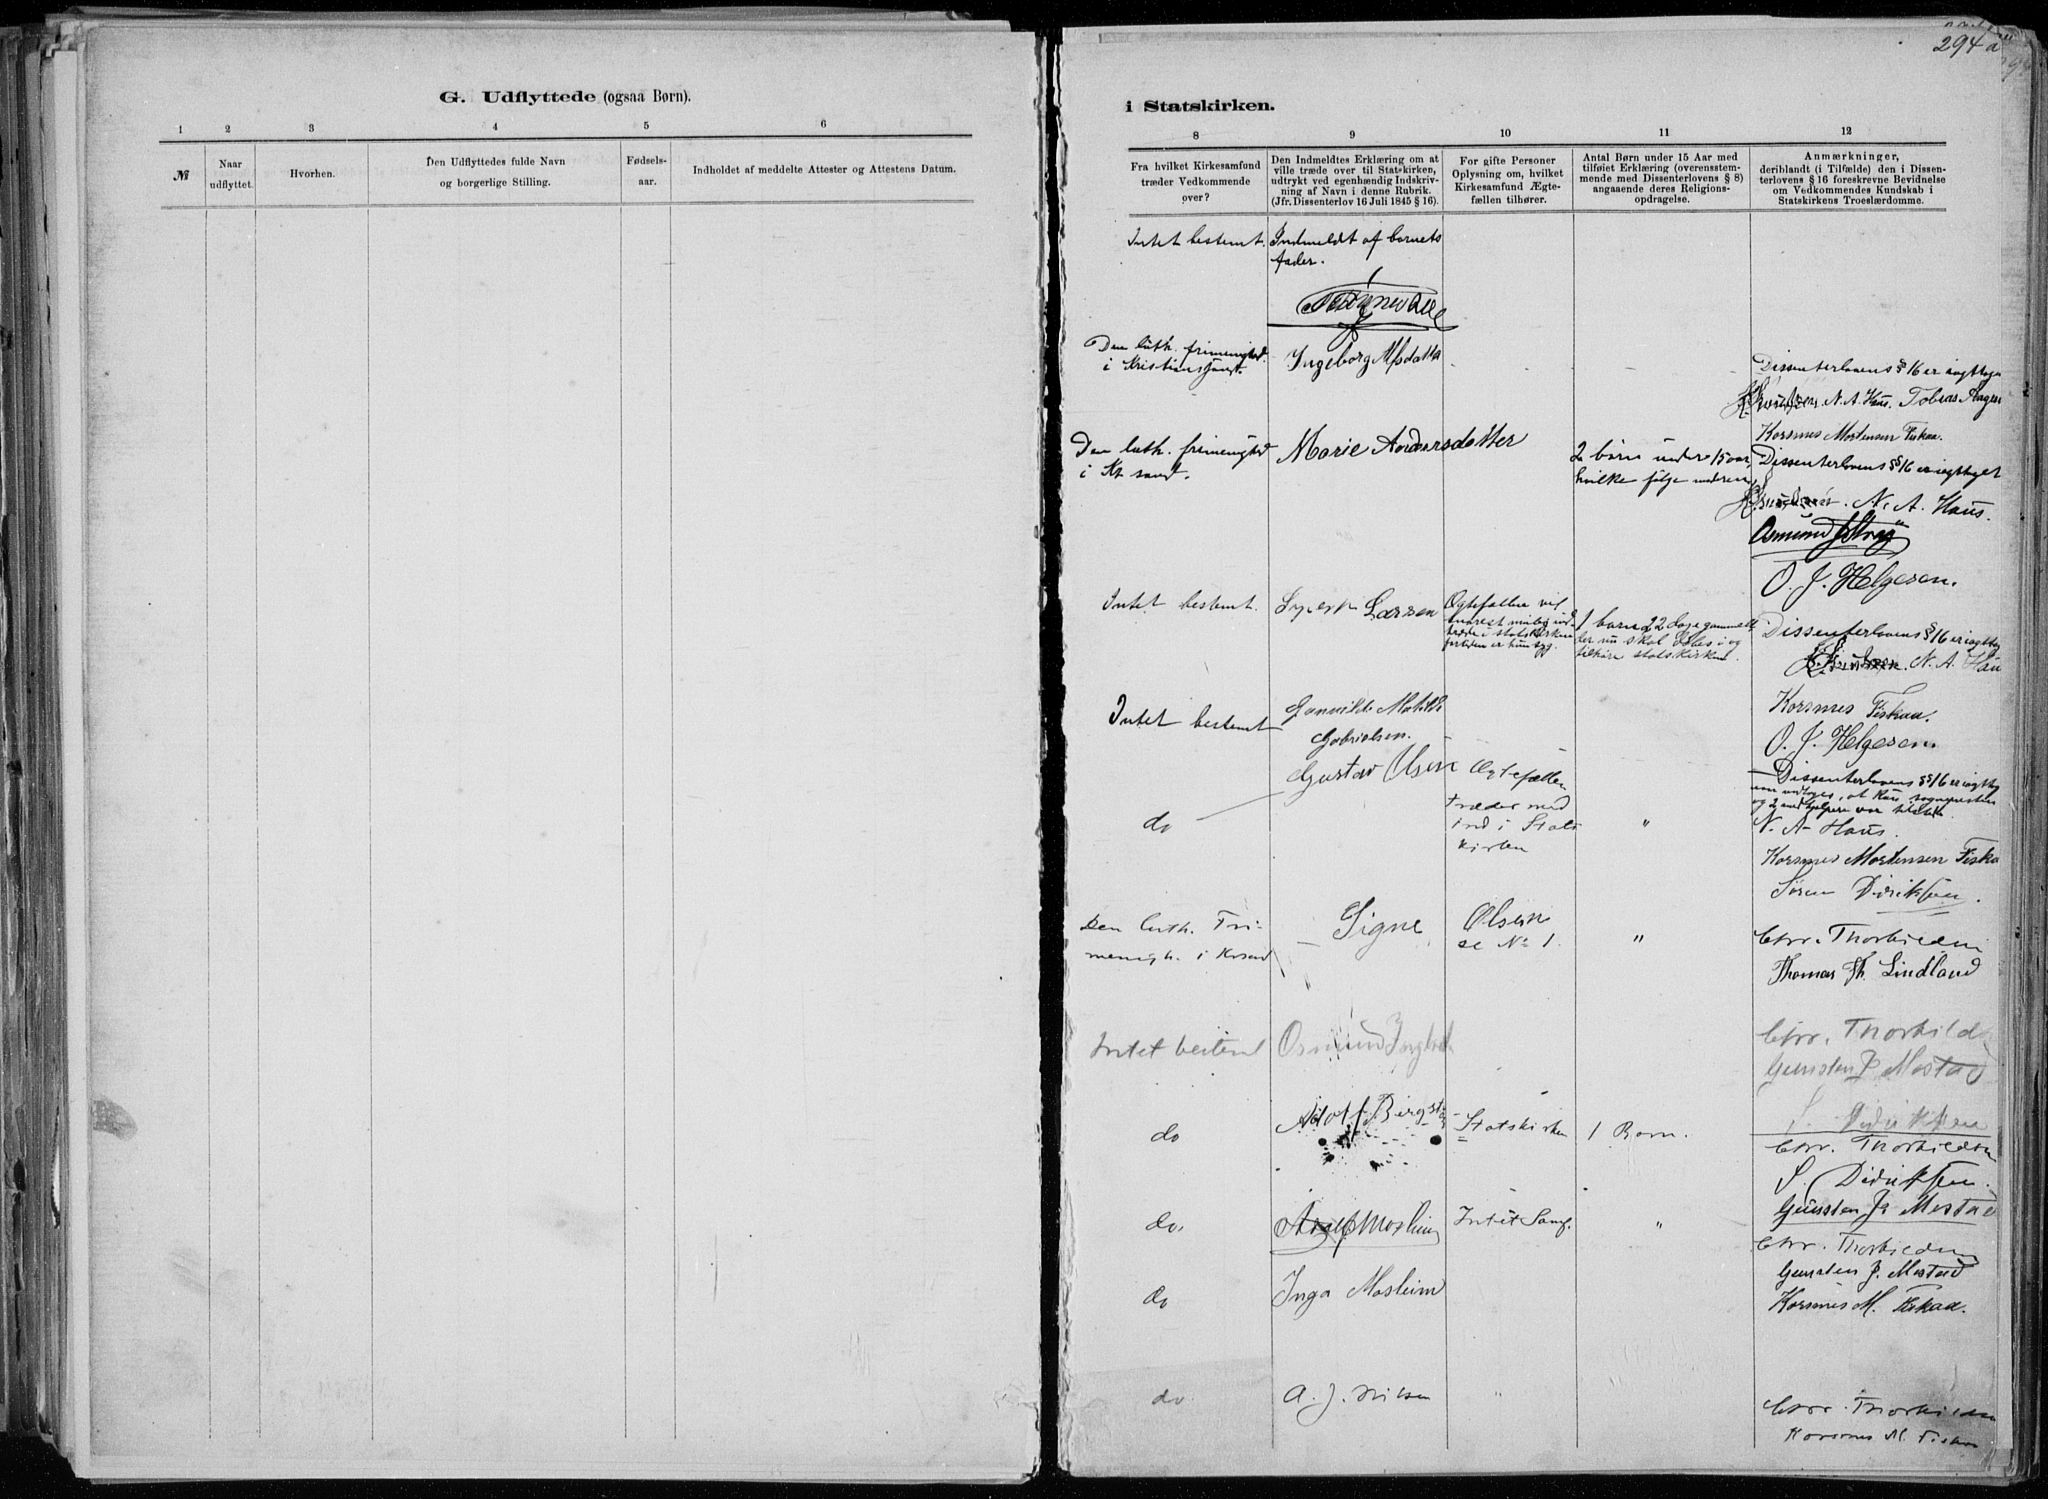 G. Udflyttede (ogsaa Børn).
1
2
3
4
5
6
№
Naar
udflyttet.
Hvorhen.
Den Udflyttedes fulde Navn
og borgerlige Stilling.
Fødsels-
aar.
Indholdet af meddelte Attester og Attestens Datum.
294 a
i Statskirken.
8
9
10
11
12
Fra hvilket Kirkesamfund
træder Vedkommende
over?
Den Indmeldtes Erklæring om at
ville træde over til Statskirken,
udtrykt ved egenhændig Indskriv-
ning af Navn i denne Rubrik.
(Jfr. Dissenterlov 16 Juli 1845 § 16).
For gifte Personer
Oplysning om, hvilket
Kirkesamfund Ægte-
fællen tilhører.
Antal Børn under 15 Aar med
tilføiet Erklæring (overensstem-
mende med Dissenterlovens § 8)
angaaende deres Religions-
opdragelse.
Anmærkninger,
deriblandt (i Tilfælde) den i Dissen-
terlovens § 16 foreskrevne Bevidnelse
om Vedkommendes Kundskab i
Statskirkens Troeslærdomme.
Intet bestemt.
Indmeldt af barnets
fader.
Den luth. frimenighed
i Kristianssand.
Ingeborg
Dissenterlovens §16 er iagttaget
N. A. Haus. Tobias
Korsmes Mortensen Fiskaa.
Den luth. frimenighed
i Kr sand.
Marie Andersdatter
2 børn under 15 aar,
hvilke følge moderen
Dissenterlovens §16 er iagttaget
N. A. Haus.
Osmund
O. J. Helgesen.
Intet bestemt.
Larsen
Ægtefællen vil
snarest mulig ind-
træde i statskirken
fortiden er hun syg.
1 barn 22 dage gammelt
der nu skal døbes i og
tilhøre statskirken.
Dissenterlovens §16 er iagttag
N. A. Hau
Korsmes Fiskaa.
O. J. Helgesen
Intet bestemt
Gunvilde Matilde
Gabrielsen.
Dissenterlovens §16 er iagttag
N. A. Haus.
Korsmes Mortensen Fiska
Søren Diriksen.
do
Gustav Olsen
Ægtefællen
træder med
ind i Stats
kirken
"
Den luth. Fri-
menigh. i Krsand
Signe
Olsen
se No 1.
"
Chr. Thorkildsen
Thomas Th. Lindland
Intet bestemt
Osmund
Chr. Thorkilds
Gunsten J. Mostad
S. Diriksen
do
Adolf Bergst
Statskirken
1 Barn.
Chr. Thorkildsen
S. Diriksen.
Gunsten J. Mostad
do.
Mosheim
Intet Samf.
"
Chr. Thorkildsen
Gunsten J. Mostad
Korsmes M. Fiskaa.
do
Inga Mosheim
do
A. J. Nilsen
"
Chr. Thorkildsen
Korsmes M. Fiskaa